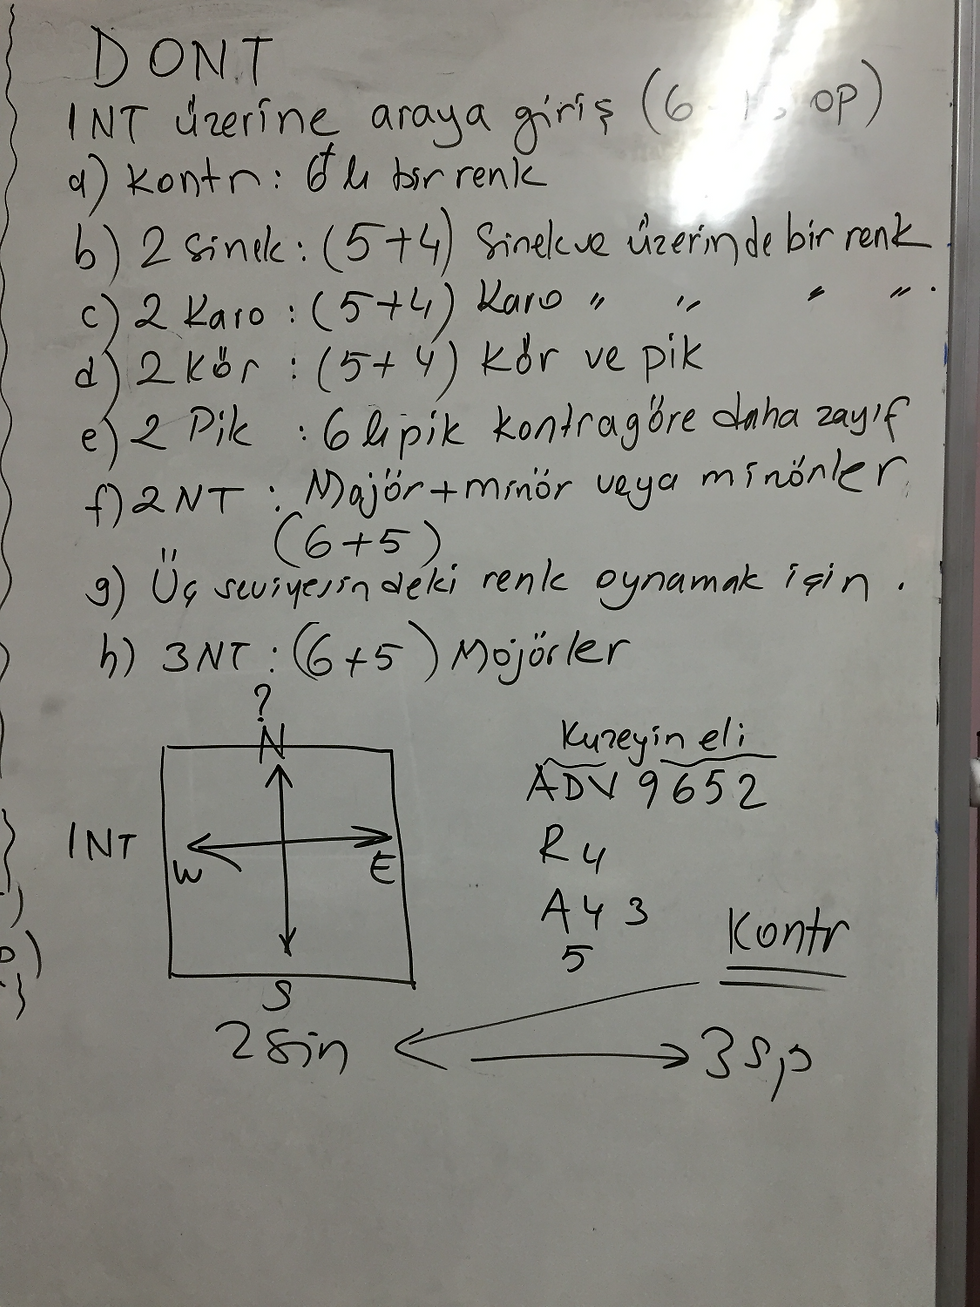 DONT
1NT üzerine araya giriş (6 op)
a) Kontr: 6+lı bir renk
b) 2 Sinek: (5+4) Sinek ve üzerinde bir renk
c) 2 Karo : (5+4) Karo " " " " .
d) 2 Kör : (5+4) Kör ve pik
e) 2 Pik : 6 lı pik kontra göre daha zayıf
f) 2NT : Majör+minör veya minörler
(6+5)
g) Üç seviyesindeki renk oynamak için .
h) 3NT : (6+5) Majörler
?
N
1NT
W
E
S
2 Sin
Kuzeyin eli
ADV 9652
R4
A43
5
Kontr
3 Sp
)
)